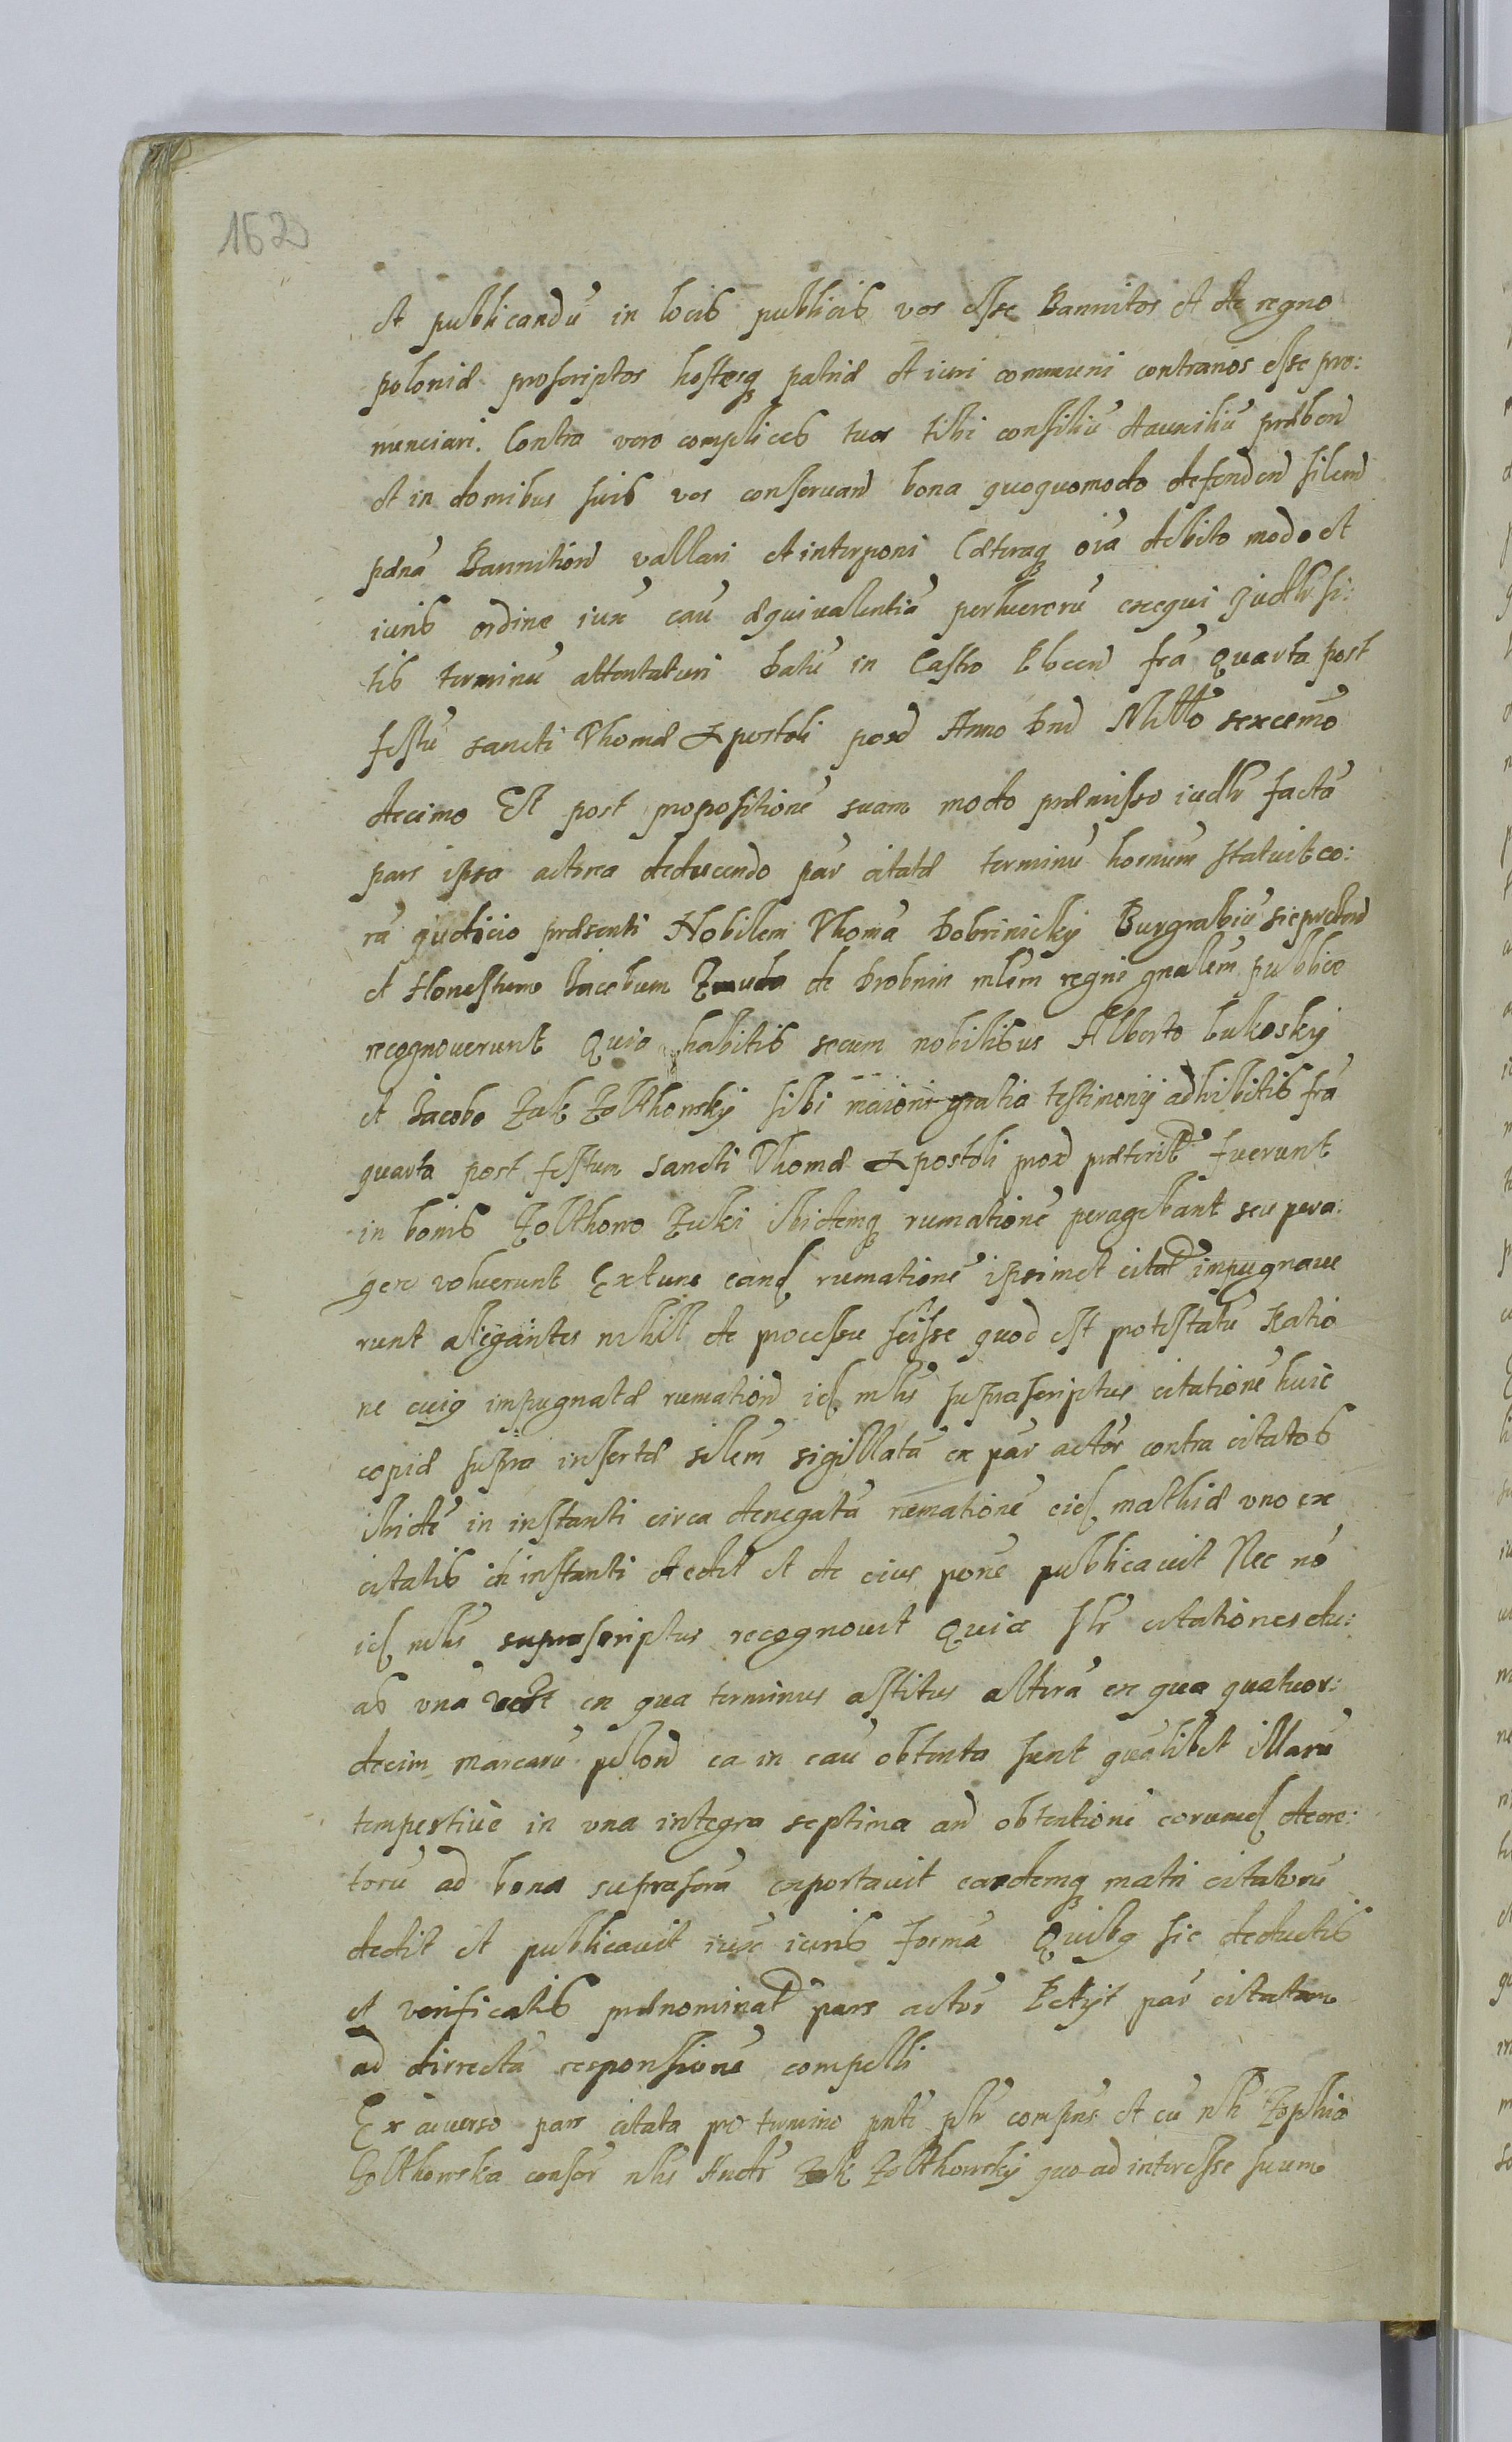 162
et publicandū in locis publicis vos esse Bannitos et de regno
poloniæ proscriptos hostesq patriæ et iuri communi contrarios esse pro:
nunciari. Contra vero complices tuos tibi consiliū et auxiliū præbend
et in domibus suis vos conseruand bona quoquomodo defendend silend
pænā Bannition vallari et interponi Cæteraq oīa debito modo et
iuris ordine iux cau æquivalentiā exequi Judlr si:
tis terminū attentaturi Datū in Castro fra quarta post
festū sancti Thomæ Apostoli pox Anno Dnī Millo sexcemo
decimo Et post propositionē suam modo præmisso iudlr factā
pars ipsa actrea deducendo par citatæ terminū hornum statuit co:
rā iudicio præsenti Nobilem Thomā Dobrinicky Burgrabiū siepræbend
et Honestum Jacobum de Drobnin mlem regni gnalem publice
recognouerunt Quia habitis secum nobilibus Alberto bukosky
et Jacobo Zuk Zolthowsky sibi maiori gratia testimonij adhibitis fra
quarta post festum sancti Thomæ Apostoli prox præterit fuerunt
in bonis Zolthowo Zuki ibidemq rumationē peragebant seu pera:
gere voluerunt Extunc eand rumationē ipsimet citat impugnaue
runt allegantes nihil de processu scisse quod est protestatū Ratio
ne cuiq impugnatæ rumation id mlis suprascriptus citationē huic
copiæ supra insertæ silem sigillatā ex par actor contra citatos
ibidē in instanti circa denegatā rumationē eid mathiæ vno ex
citatis in instanti dedit et de eius ponē publicauit Nec nō
id mlis suprascriptus recognouit Quia slr citationes du:
as vna in qua terminus astitus alterā ex qua quatuor:
decim marcarū polon ea in cau obtenta sunt quālibet illarū
tempestiuè in vna integra septima and obtentionē eorumd decre:
torū ad bona suprasora exportauit easdemq matri citatorū
dedit et publicauit iuxc iuris formā Quibq sic deductis
et verificatis prænominat pars actor Petyt par citatam
ad dirrectā responsionē compelli
Ex aduerso pars citata pro termino pnti plr compns et cū nli Zophia
Zolthowska consor nlis Andr Zuk Zolthowsky quo ad interesse suum